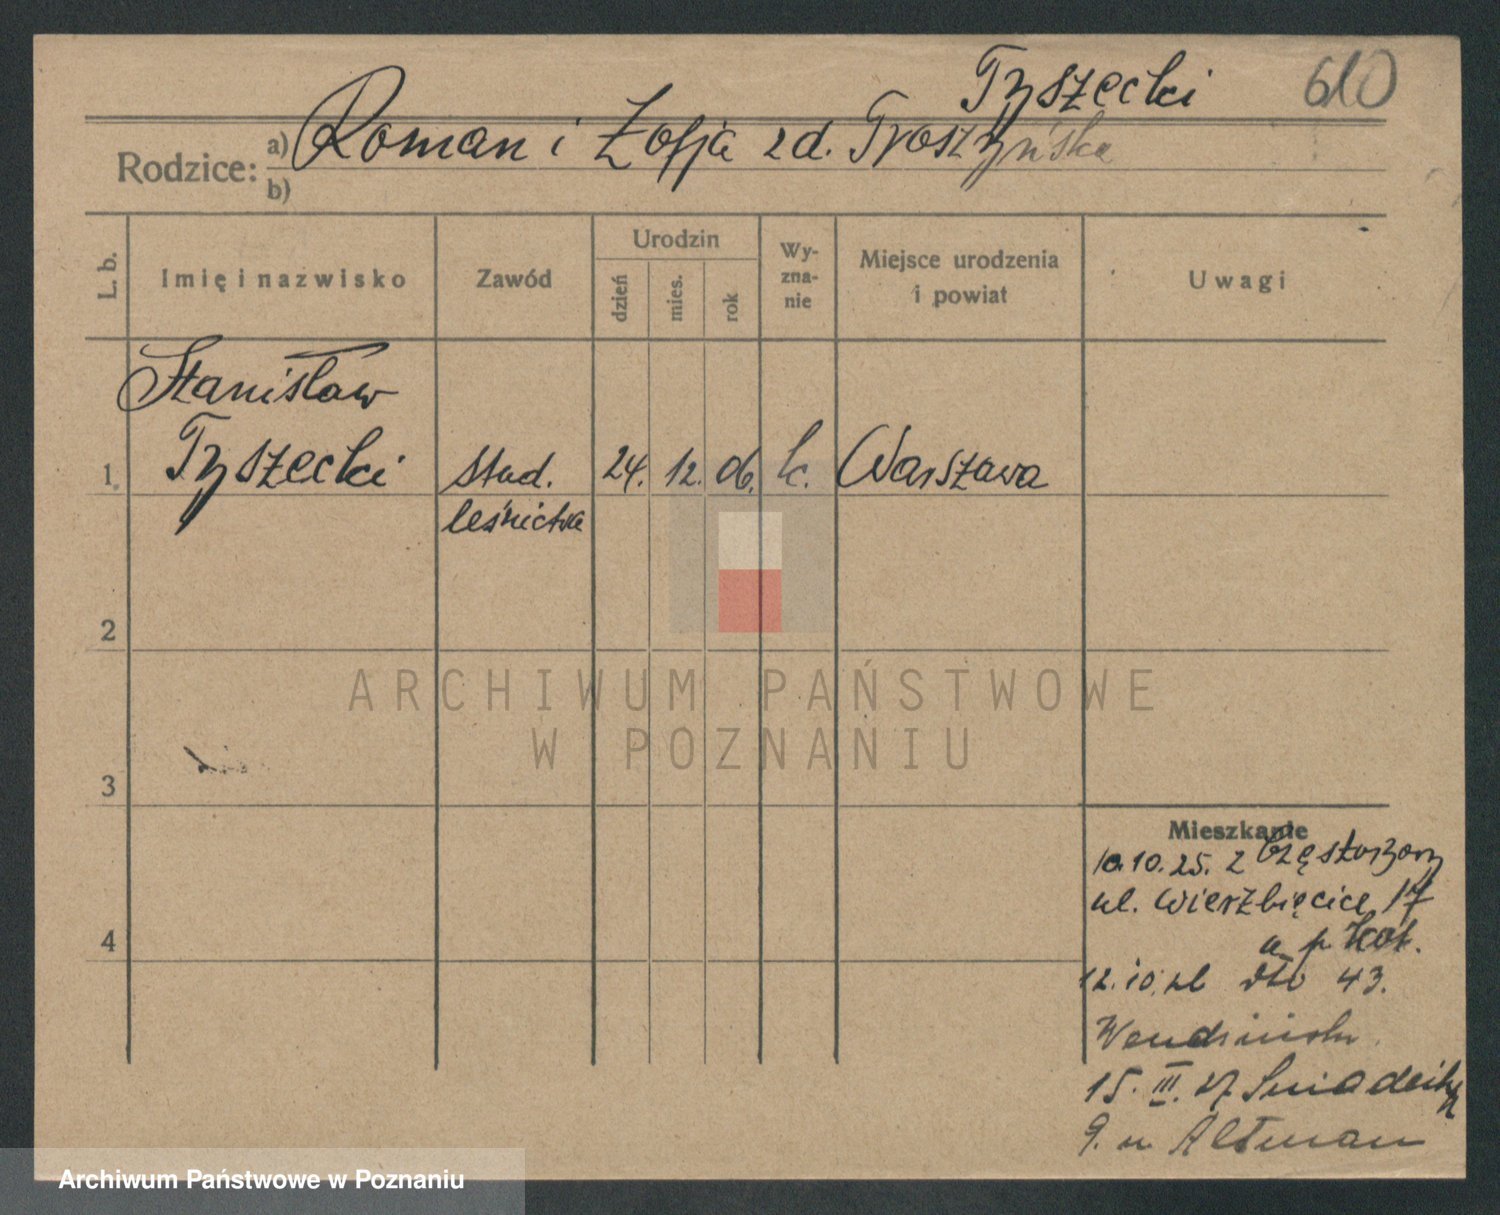 Tyszecki 610
Rodzice: a) Roman i Zofja zd. Troszyńska
b)
L. b. Imię i nazwisko Zawód Urodzin dzień mies. rok Wyznanie Miejsce urodzenia i powiat Uwagi
Stanisław
1. Tyszecki stud. 24. 12. 06. k. Warszawa
leśnictwa
2
ARCHIWUM PAŃSTWOWE
W POZNANIU
3
Mieszkanie
10.10.25. z
ul. Wierzbięcice 17
u p. Kot.
4
12.10. dto 43.
15. III. 27 Śniadeckich
9. u. Altman
Archiwum Państwowe w Poznaniu